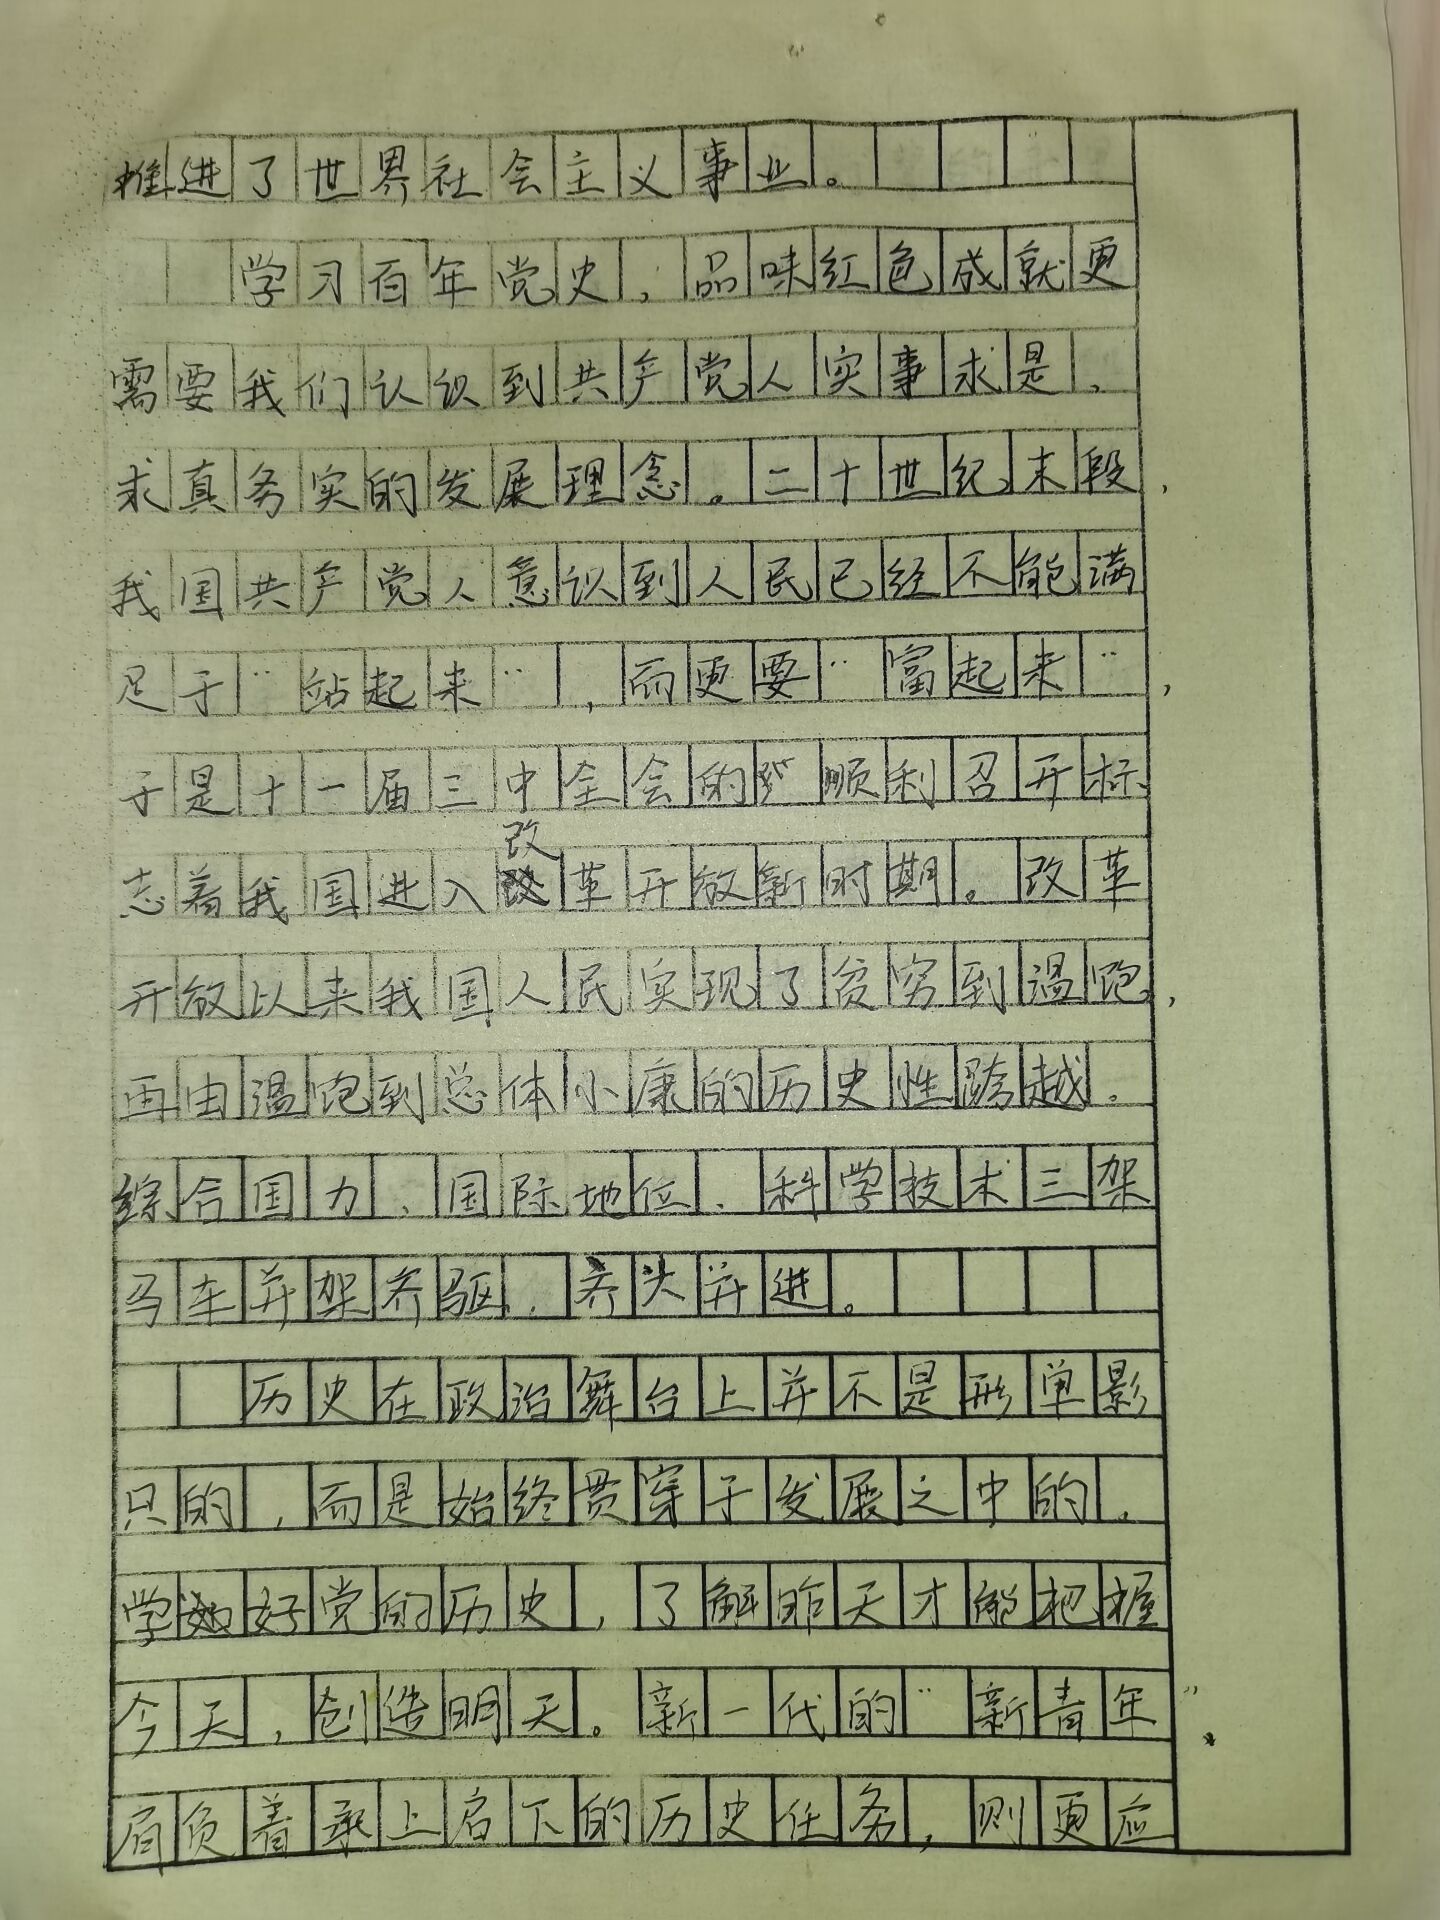 推进了世界社会主义事业。
学习百年党史，品味红色成就更
需要我们认识到共产党人实事求是，
求真务实的发展理念。二十世纪末段，
我国共产党人意识到人民已经不能满
足于“站起来”，而更要“富起来”，
于是十一届三中全会的顺利召开标
志着我国进入改革开放新时期。改革
开放以来我国人民实现了贫穷到温饱，
再由温饱到总体小康的历史性跨越。
综合国力、国际地位、科学技术三架
马车并架齐驱，齐头并进。
历史在政治舞台上并不是形单影
只的，而是始终贯穿于发展之中的，
学好党的历史，了解昨天才能把握
今天，创造明天。新一代的“新青年”
肩负着承上启下的历史任务，则更应